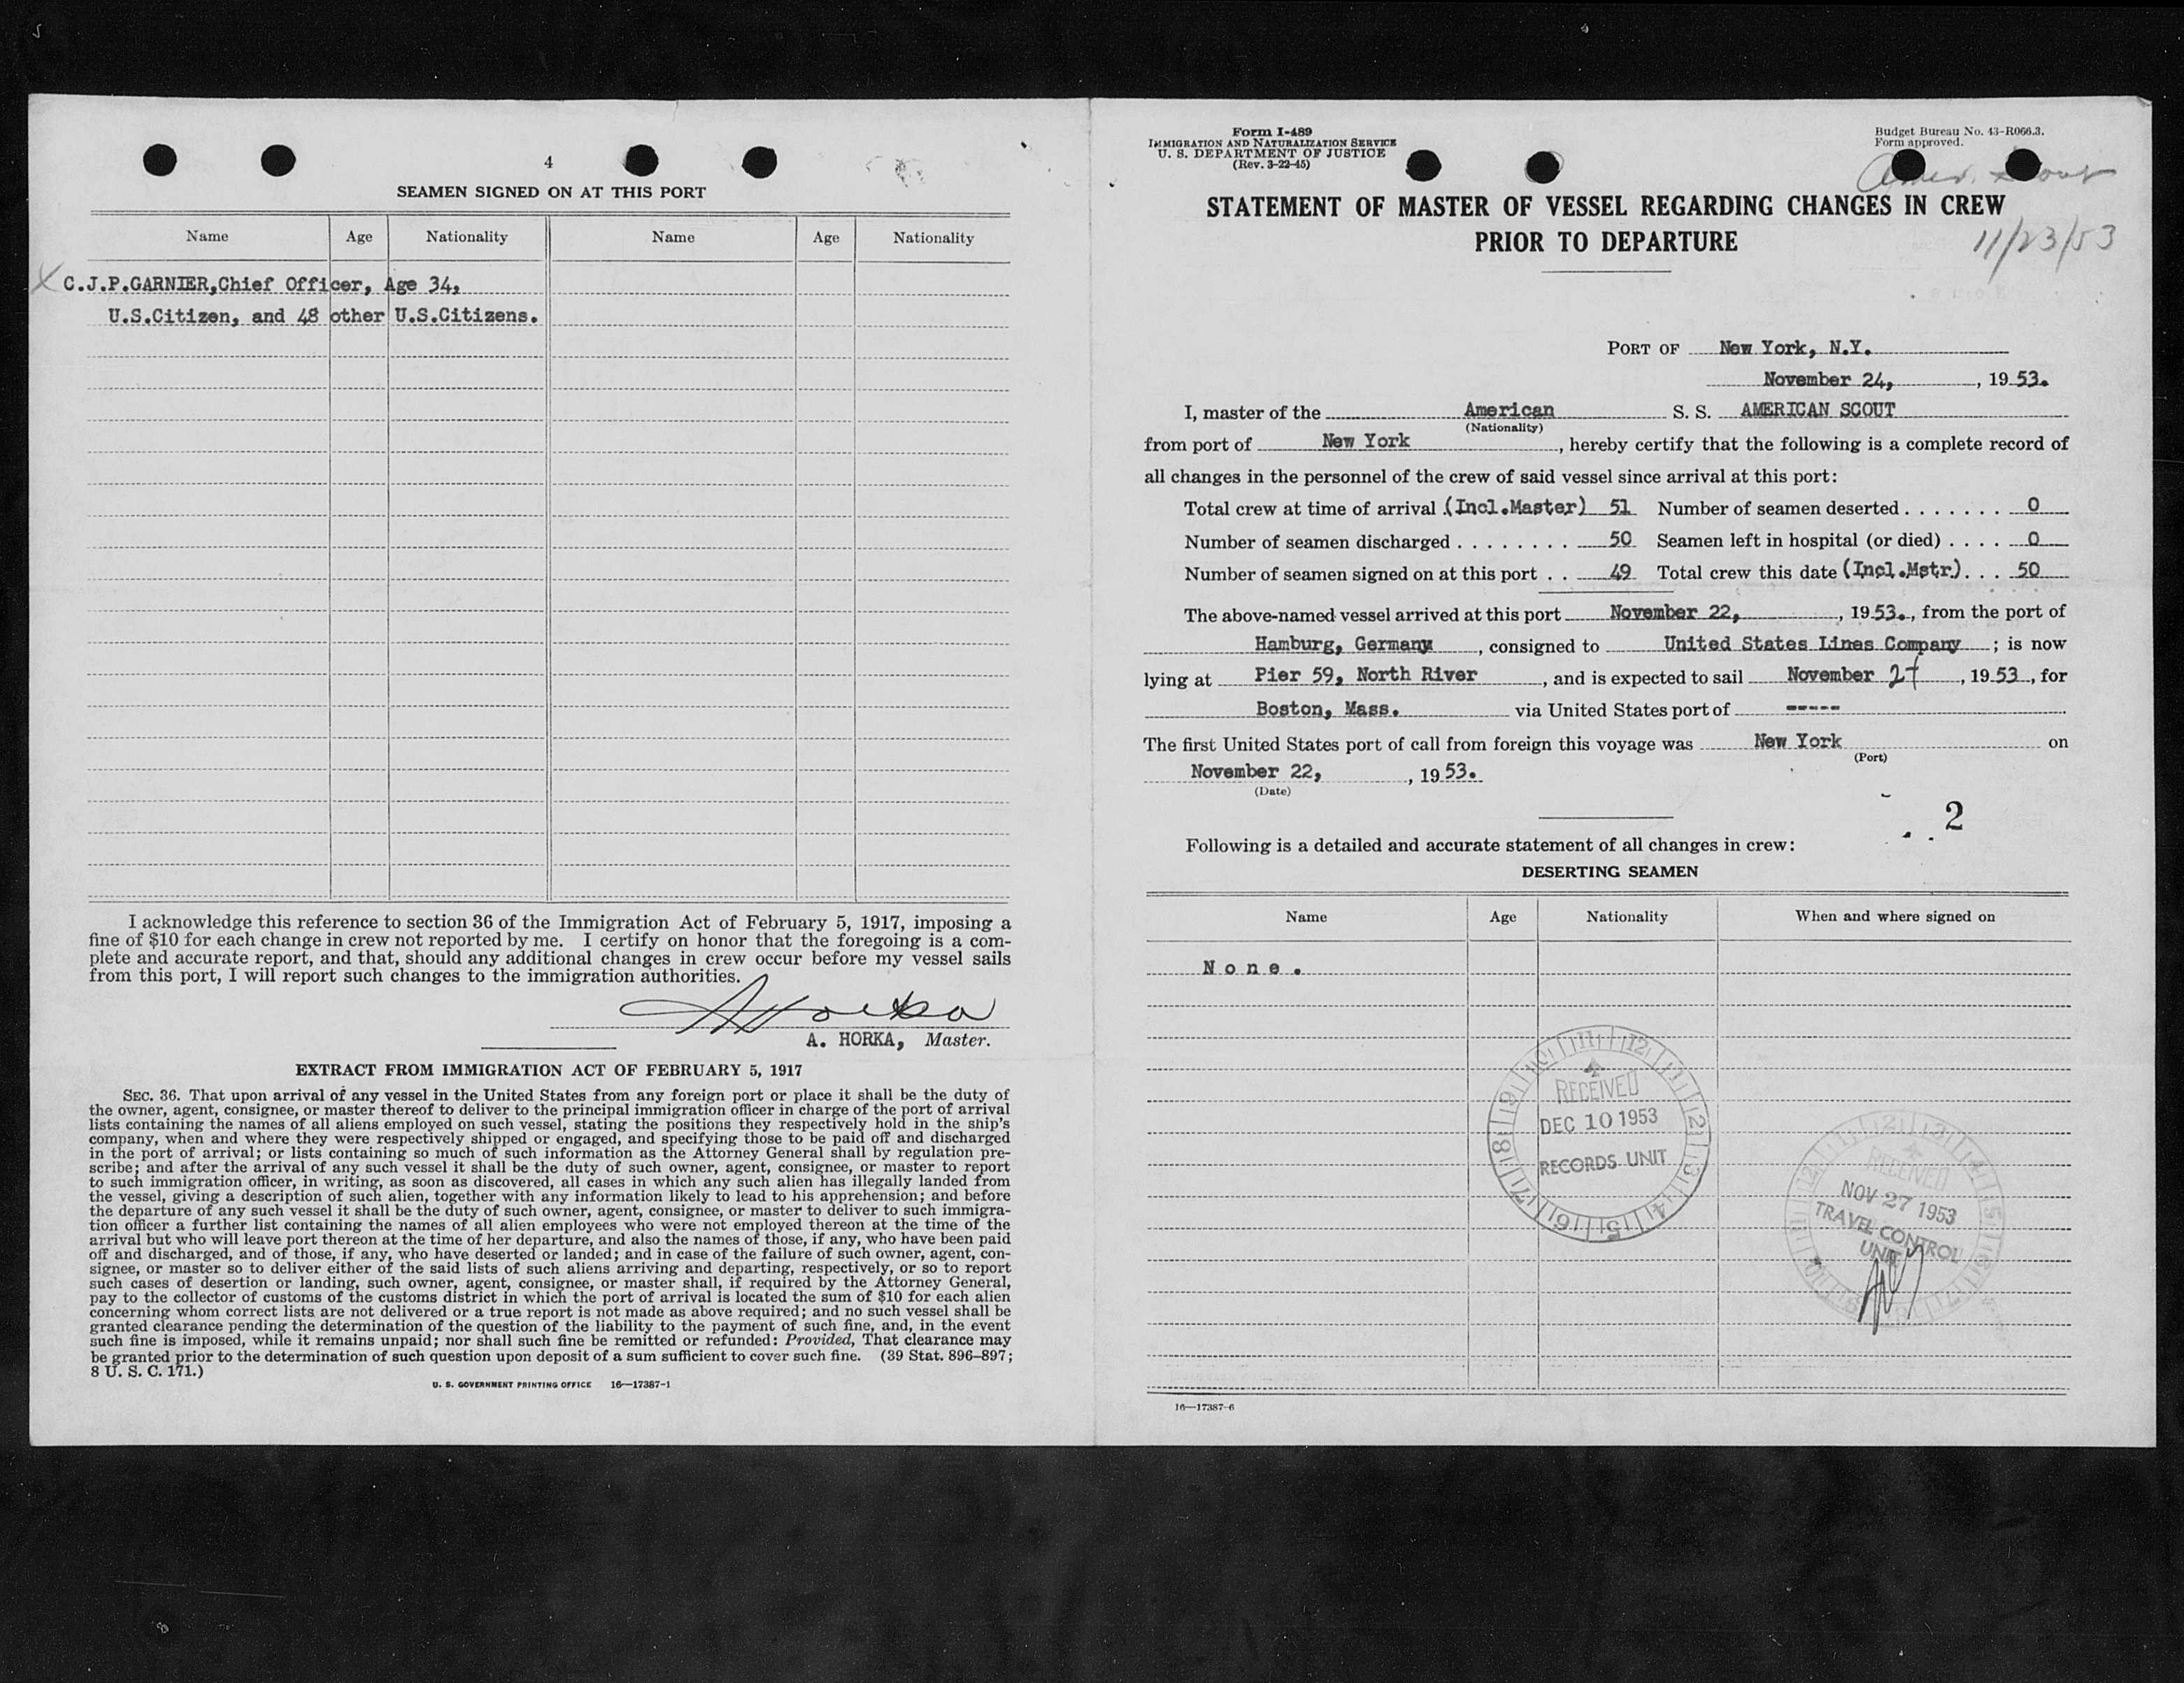 4
SEAMEN SIGNED ON AT THIS PORT
Name Age Nationality Name Age Nationality
X C.J.P.GARNIER,Chief Officer, Age 34,
U.S.Citizen, and 48 other U.S.Citizens.
I acknowledge this reference to section 36 of the Immigration Act of February 5, 1917, imposing a
fine of $10 for each change in crew not reported by me. I certify on honor that the foregoing is a com-
plete and accurate report, and that, should any additional changes in crew occur before my vessel sails
from this port, I will report such changes to the immigration authorities.
A Horka
A. HORKA, Master.
EXTRACT FROM IMMIGRATION ACT OF FEBRUARY 5, 1917
SEC. 36. That upon arrival of any vessel in the United States from any foreign port or place it shall be the duty of
the owner, agent, consignee, or master thereof to deliver to the principal immigration officer in charge of the port of arrival
lists containing the names of all aliens employed on such vessel, stating the positions they respectively hold in the ship's
company, when and where they were respectively shipped or engaged, and specifying those to be paid off and discharged
in the port of arrival; or lists containing so much of such information as the Attorney General shall by regulation pre-
scribe; and after the arrival of any such vessel it shall be the duty of such owner, agent, consignee, or master to report
to such immigration officer, in writing, as soon as discovered, all cases in which any such alien has illegally landed from
the vessel, giving a description of such alien, together with any information likely to lead to his apprehension; and before
the departure of any such vessel it shall be the duty of such owner, agent, consignee, or master to deliver to such immigra-
tion officer a further list containing the names of all alien employees who were not employed thereon at the time of the
arrival but who will leave port thereon at the time of her departure, and also the names of those, if any, who have been paid
off and discharged, and of those, if any, who have deserted or landed; and in case of the failure of such owner, agent, con-
signee, or master so to deliver either of the said lists of such aliens arriving and departing, respectively, or so to report
such cases of desertion or landing, such owner, agent, consignee, or master shall, if required by the Attorney General,
pay to the collector of customs of the customs district in which the port of arrival is located the sum of $10 for each alien
concerning whom correct lists are not delivered or a true report is not made as above required; and no such vessel shall be
granted clearance pending the determination of the question of the liability to the payment of such fine, and, in the event
such fine is imposed, while it remains unpaid; nor shall such fine be remitted or refunded: Provided, That clearance may
be granted prior to the determination of such question upon deposit of a sum sufficient to cover such fine. (39 Stat. 896–897;
8 U. S. C. 171.)
U. S. GOVERNMENT PRINTING OFFICE 16—17387-1
Form I-489
IMMIGRATION AND NATURALIZATION SERVICE
U. S. DEPARTMENT OF JUSTICE
(Rev. 3-22-45)
Budget Bureau No. 43-R066.3.
Form approved.
Amer. Scout
STATEMENT OF MASTER OF VESSEL REGARDING CHANGES IN CREW
PRIOR TO DEPARTURE
11/23/53
PORT OF New York, N.Y.
November 24, , 19 53.
I, master of the American S. S. AMERICAN SCOUT
(Nationality)
from port of New York , hereby certify that the following is a complete record of
all changes in the personnel of the crew of said vessel since arrival at this port:
Total crew at time of arrival (Incl.Master) 51 Number of seamen deserted . . . . . . . 0
Number of seamen discharged . . . . . . . . 50 Seamen left in hospital (or died) . . . . 0
Number of seamen signed on at this port . . 49 Total crew this date (Incl.Mstr.). . . 50
The above-named vessel arrived at this port November 22, , 19 53., from the port of
Hamburg, Germany , consigned to United States Lines Company ; is now
lying at Pier 59, North River , and is expected to sail November 27 , 19 53 , for
Boston, Mass. via United States port of -----
The first United States port of call from foreign this voyage was New York on
(Port)
November 22, , 19 53.
(Date)
2
Following is a detailed and accurate statement of all changes in crew:
DESERTING SEAMEN
Name Age Nationality When and where signed on
None.
RECEIVED
DEC 10 1953
RECORDS UNIT
RECEIVED
NOV 27 1953
TRAVEL CONTROL
UNIT
16—17387-6